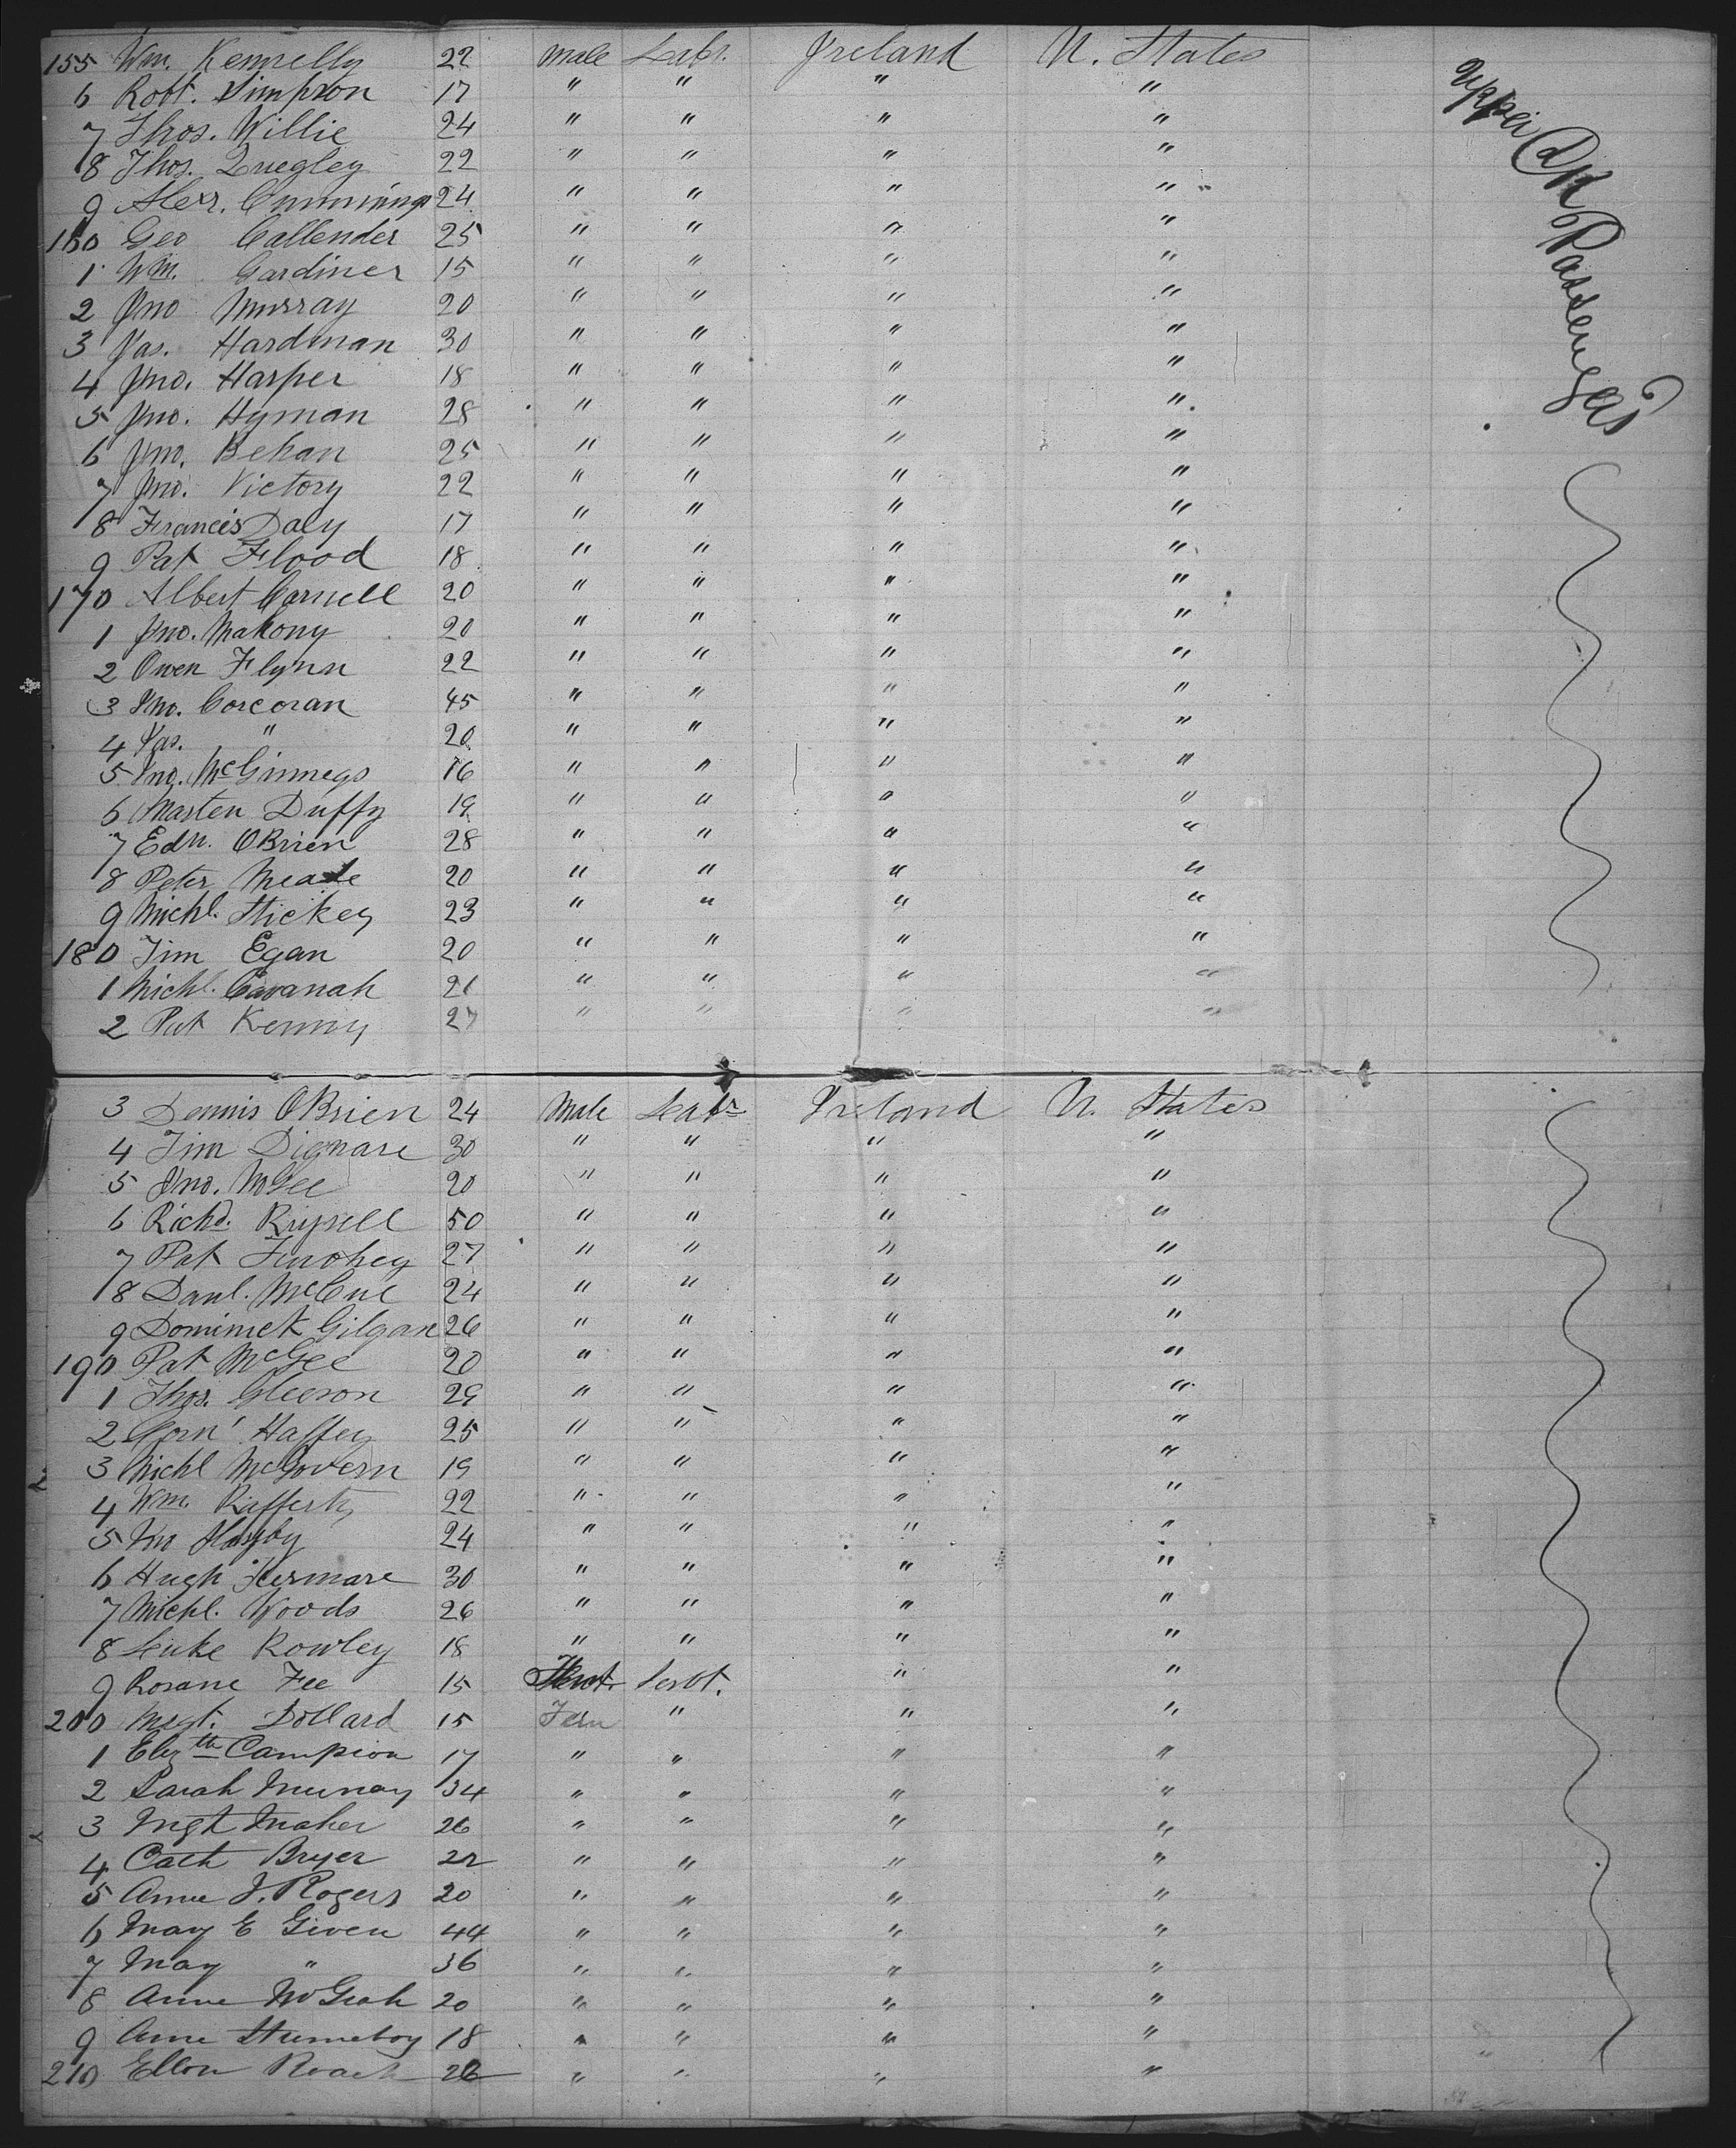 155 Wm. Kennelly 22 Male Labr. Ireland U. States
6 Robt. Simpson 17 " " " "
7 Thos. Willie 24 " " " "
8 Thos. Quegley 22 " " " "
9 Alexr. Cummings 24 " " " "
160 Geo Callender 25 " " " "
1 Wm. Gardiner 15 " " " "
2 Jno Murray 20 " " " "
3 Jas. Hardman 30 " " " "
4 Jno. Harper 18 " " " "
5 Jno. Hyman 28 " " " "
6 Jno. Behan 25 " " " "
7 Jno. Victory 22 " " " "
8 Francis Daly 17 " " " "
9 Pat Flood 18 " " " "
170 Albert Carnell 20 " " " "
1 Jno. Mahony 20 " " " "
2 Owen Flynn 22 " " " "
3 Jno. Corcoran 45 " " " "
4 Jas. " 20 " " " "
5 Jno. McGinnegs 16 " " " "
6 Masten Duffy 19 " " " "
7 Edn. OBrien 28 " " " "
8 Peter Meade 20 " " " "
9 Michl. Hickey 23 " " " "
180 Tim Egan 20 " " " "
1 Michl. Cavanah 21 " " " "
2 Pat Kenny 27 " " " "
Upper Dk Passengers
3 Dennis OBrien 24 Male Labr Ireland U. States
4 Tim Dignare 30 " " " "
5 Jno. McGee 20 " " " "
6 Richd. Russell 50 " " " "
7 Pat 27 " " " "
8 Danl. McCue 24 " " " "
9 Dominick Gilgan 26 " " " "
190 Pat McGee 20 " " " "
1 Thos. Gleeson 29 " " " "
2 Corn' Haffey 25 " " " "
3 Michl McGovern 19 " " " "
4 Wm. Rafferty 22 " " " "
5 Jno 24 " " " "
6 Hugh 30 " " " "
7 Michl. Woods 26 " " " "
8 Luke Rowley 18 " " " "
9 Rosane Fee 15 Servt. " "
200 Mgt. Dollard 15 Fem " " "
1 Elizth Campion 17 " " " "
2 Sarah Murray 34 " " " "
3 Mgt Maher 26 " " " "
4 Cath Bryer 22 " " " "
5 Anne J. Rogers 20 " " " "
6 Mary E Given 44 " " " "
7 May " 36 " " " "
8 Anne McGrah 20 " " " "
9 Anne 18 " " " "
210 Ellen Roach 26 " " " "